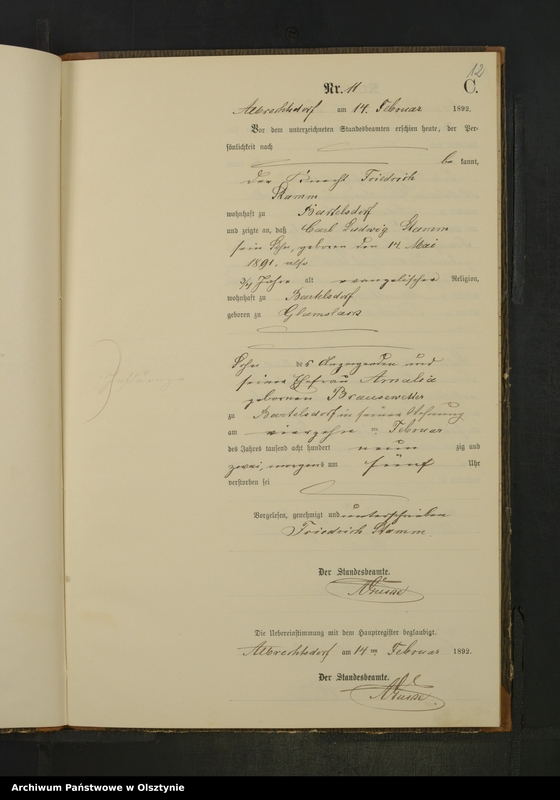 12
Nr. 11
C.
Albrechtsdorf am 14. Februar 1892.
Vor dem unterzeichneten Standesbeamten erschien heute, der Per-
sönlichkeit nach
be kannt,
der Knecht Friedrich
Stamm
wohnhaft zu Bartelsdorf
und zeigte an, daß Carl Ludwig Stamm
sein Sohn, geboren den 14. Mai
1891, also
3/4 Jahre alt evangelischer Religion,
wohnhaft zu Bartelsdorf
geboren zu
Sohn des Anzeigenden und
seiner Ehefrau Amalie
geborenen Brausewetter
zu Bartelsdorf in seiner Wohnung
am vierzehn ten Februar
des Jahres tausend acht hundert neun zig und
zwei, morgens um fünf Uhr
verstorben sei
Vorgelesen, genehmigt und unterschrieben
Friedrich Stamm.
Der Standesbeamte.
Die Uebereinstimmung mit dem Hauptregister beglaubigt.
Albrechtsdorf am 14 ten Februar 1892.
Der Standesbeamte.
Archiwum Państwowe w Olsztynie